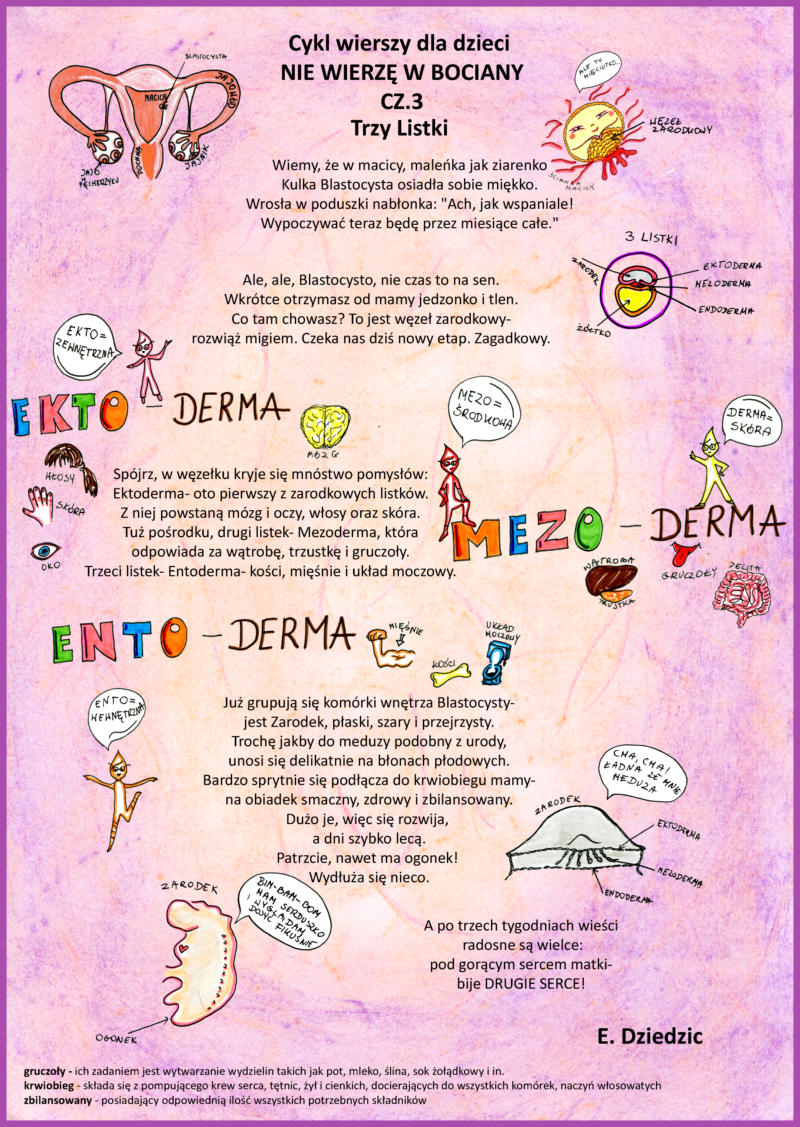 Cykl wierszy dla dzieci
NIE WIERZĘ W BOCIANY
CZ.3
Trzy Listki
BLASTOCYSTA
JAJOWÓD
MACICA
JAJO
W
PĘCHERZYKU
POCHWA
JAJNIK
ALE TU
MIĘCIUTKO...
WĘZEŁ
ZARODKOWY
ŚCIANKA
MACICY
Wiemy, że w macicy, maleńka jak ziarenko
Kulka Blastocysta osiadła sobie miękko.
Wrosła w poduszki nabłonka: "Ach, jak wspaniale!
Wypoczywać teraz będę przez miesiące całe."
3 LISTKI
ZARODEK
EKTODERMA
MEZODERMA
ENDODERMA
ŻÓŁTKO
Ale, ale, Blastocysto, nie czas to na sen.
Wkrótce otrzymasz od mamy jedzonko i tlen.
Co tam chowasz? To jest węzeł zarodkowy-
rozwiąż migiem. Czeka nas dziś nowy etap. Zagadkowy.
EKTO=
ZEWNĘTRZNA
EKTO - DERMA
MÓZG
MEZO=
ŚRODKOWA
DERMA=
SKÓRA
WŁOSY
SKÓRA
OKO
Spójrz, w węzełku kryje się mnóstwo pomysłów:
Ektoderma- oto pierwszy z zarodkowych listków.
Z niej powstaną mózg i oczy, włosy oraz skóra.
Tuż pośrodku, drugi listek- Mezoderma, która
odpowiada za wątrobę, trzustkę i gruczoły.
Trzeci listek- Entoderma- kości, mięśnie i układ moczowy.
MEZO - DERMA
WĄTROBA
TRUSTKA
GRUCZOŁY
JELITA
ENTO - DERMA
MIĘŚNIE
KOŚCI
UKŁAD
MOCZOWY
ENTO=
WEWNĘTRZNA
Już grupują się komórki wnętrza Blastocysty-
jest Zarodek, płaski, szary i przejrzysty.
Trochę jakby do meduzy podobny z urody,
unosi się delikatnie na błonach płodowych.
Bardzo sprytnie się podłącza do krwiobiegu mamy-
na obiadek smaczny, zdrowy i zbilansowany.
Dużo je, więc się rozwija,
a dni szybko lecą.
Patrzcie, nawet ma ogonek!
Wydłuża się nieco.
CHA, CHA!
ŁADNA ZE MNIE
MEDUZA
ZARODEK
EKTODERMA
MEZODERMA
ENDODERMA
ZARODEK
BIM-BAM-BOM
MAM SERDUSZKO
I WYGLĄDAM
DOSYĆ FIKUŚNIE
OGONEK
A po trzech tygodniach wieści
radosne są wielce:
pod gorącym sercem matki-
bije DRUGIE SERCE!
E. Dziedzic
gruczoły - ich zadaniem jest wytwarzanie wydzielin takich jak pot, mleko, ślina, sok żołądkowy i in.
krwiobieg - składa się z pompującego krew serca, tętnic, żył i cienkich, docierających do wszystkich komórek, naczyń włosowatych
zbilansowany - posiadający odpowiednią ilość wszystkich potrzebnych składników